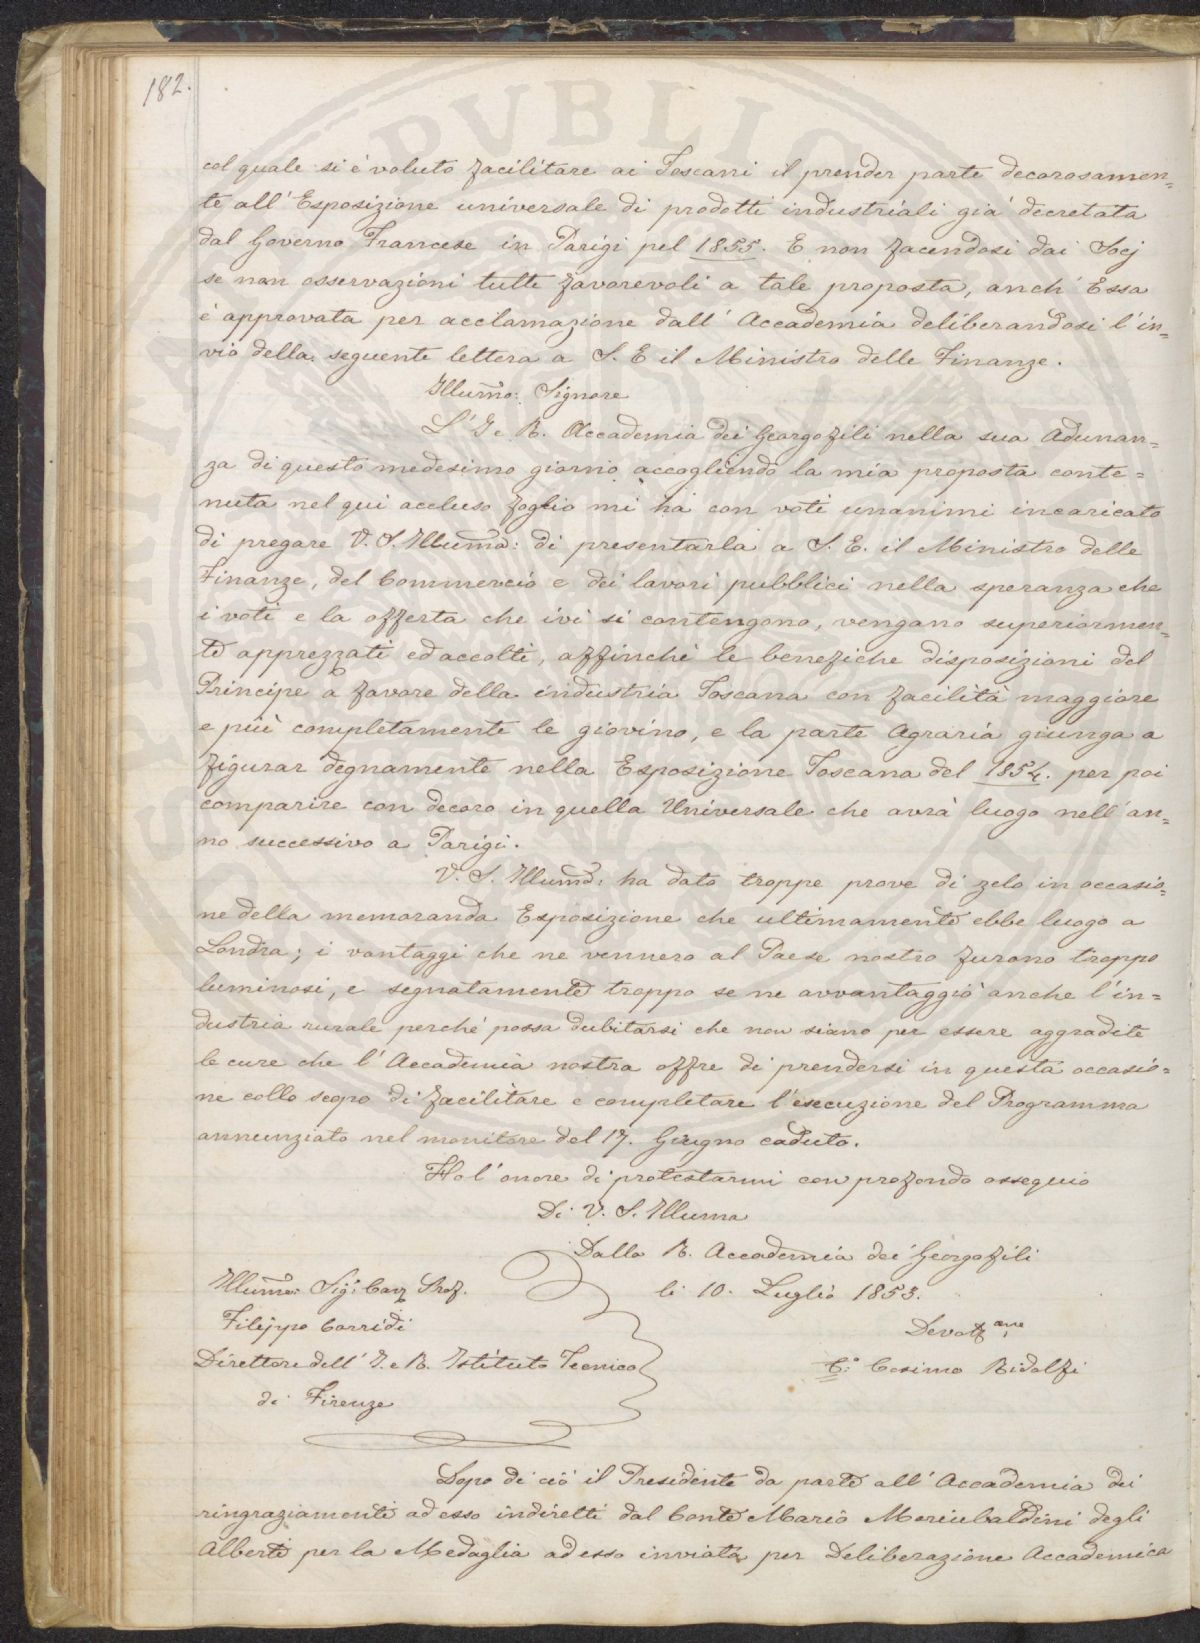 182.
col quale si è voluto facilitare ai Toscani il prender parte decorosamen=
te all'Esposizione universale di prodotti industriali già decretata
dal Governo Francese in Parigi pel 1855. E non facendosi dai Socj
se non osservazioni tutte favorevoli a tale proposta, anch'Essa
è approvata per acclamazione dall'Accademia deliberandosi l'in=
vio della seguente lettera a S. E il Ministro delle Finanze.
Illumo: Signore
L'I e R. Accademia dei Georgofili nella sua Adunan=
za di questo medesimo giorno accogliendo la mia proposta conte=
nuta nel qui accluso foglio mi ha con voti unanimi incaricato
di pregare V. S. Illuma: di presentarla a S. E. il Ministro delle
Finanze, del Commercio e dei lavori pubblici nella speranza che
i voti e la offerta che ivi si contengono, vengano superiormen=
te apprezzati ed accolti, affinchè le benefiche disposizioni del
Principe a favore della industria Toscana con facilità maggiore
e più completamente le giovino, e la parte Agraria giunga a
figurar degnamente nella Esposizione Toscana del 1854. per poi
comparire con decoro in quella Universale che avrà luogo nell'an=
no successivo a Parigi.
V. S. Illuma: ha dato troppe prove di zelo in occasio=
ne della memoranda Esposizione che ultimamente ebbe luogo a
Londra; i vantaggi che ne vennero al Paese nostro furono troppo
luminosi, e segnatamente troppo se ne avvantaggiò anche l'in=
dustria rurale perchè possa dubitarsi che non siano per essere aggradite
le cure che l'Accademia nostra offre di prendersi in questa occasio=
ne collo scopo di facilitare e completare l'esecuzione del Programma
annunziato nel monitore del 17. Giugno caduto.
Ho l'onore di protestarmi con profondo ossequio
Di V. S. Illuma
Dalla R. Accademia dei Georgofili
li 10. Luglio 1853.
Illumo: Sigr: Cav Prof.
Filippo Corridi
Direttore dell'I. e R. Istituto Tecnico
di Firenze
Cosimo Ridolfi
Dopo di ciò il Presidente da parte all'Accademia dei
ringraziamenti ad esso indiretti dal Conte Mario Moriubaldini degli
Alberti per la Medaglia ad esso inviata per Deliberazione Accademica